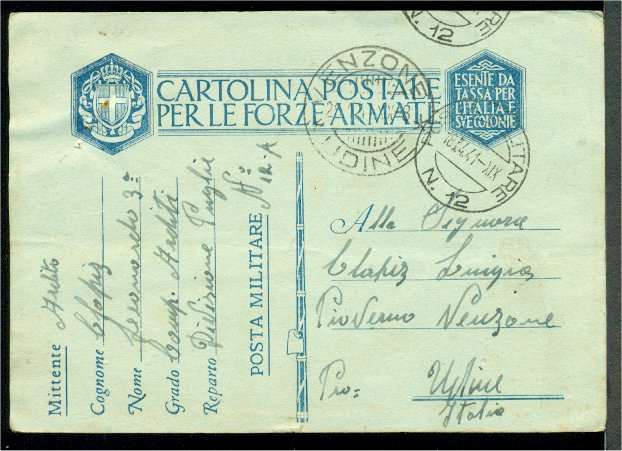 CARTOLINA POSTALE
PER LE FORZE ARMATE
ESENTE DA
TASSA PER
L'ITALIA E
SVE COLONIE
VENZONE
UDINE
MILITARE
N. 12
18.2.41-XIX
N. 12
Mittente Ardito
Cognome Clapiz
Nome Leonardo 3º
Grado Comp. Arditi
Reparto Divisione Puglie
POSTA MILITARE Nº 12-A
Alla Signora
Clapiz Luigia
Venzone
Pro= Udine
Italia